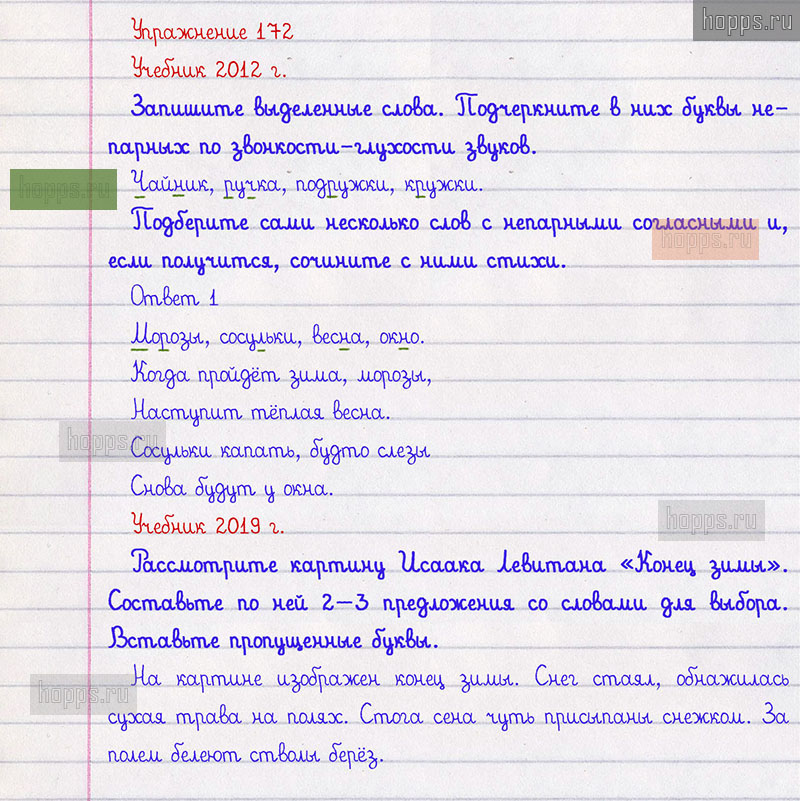 hopps.ru
Упражнение 172
Учебник 2012 г.
Запишите выделенные слова. Подчеркните в них буквы не-
парных по звонкости-глухости звуков.
hopps.ru
Чайник, ручка, подружки, кружки.
Подберите сами несколько слов с непарными согласными и,
hopps.ru
если получится, сочините с ними стихи.
Ответ 1
Морозы, сосульки, весна, окно.
Когда пройдёт зима, морозы,
Наступит тёплая весна.
hopps.ru
Сосульки капать, будто слезы
Снова будут у окна.
hopps.ru
Учебник 2019 г.
Рассмотрите картину Исаака Левитана «Конец зимы».
Составьте по ней 2–3 предложения со словами для выбора.
Вставьте пропущенные буквы.
На картине изображен конец зимы. Снег стаял, обнажилась
hopps.ru
сухая трава на полях. Стога сена чуть присыпаны снежком. За
полем белеют стволы берёз.